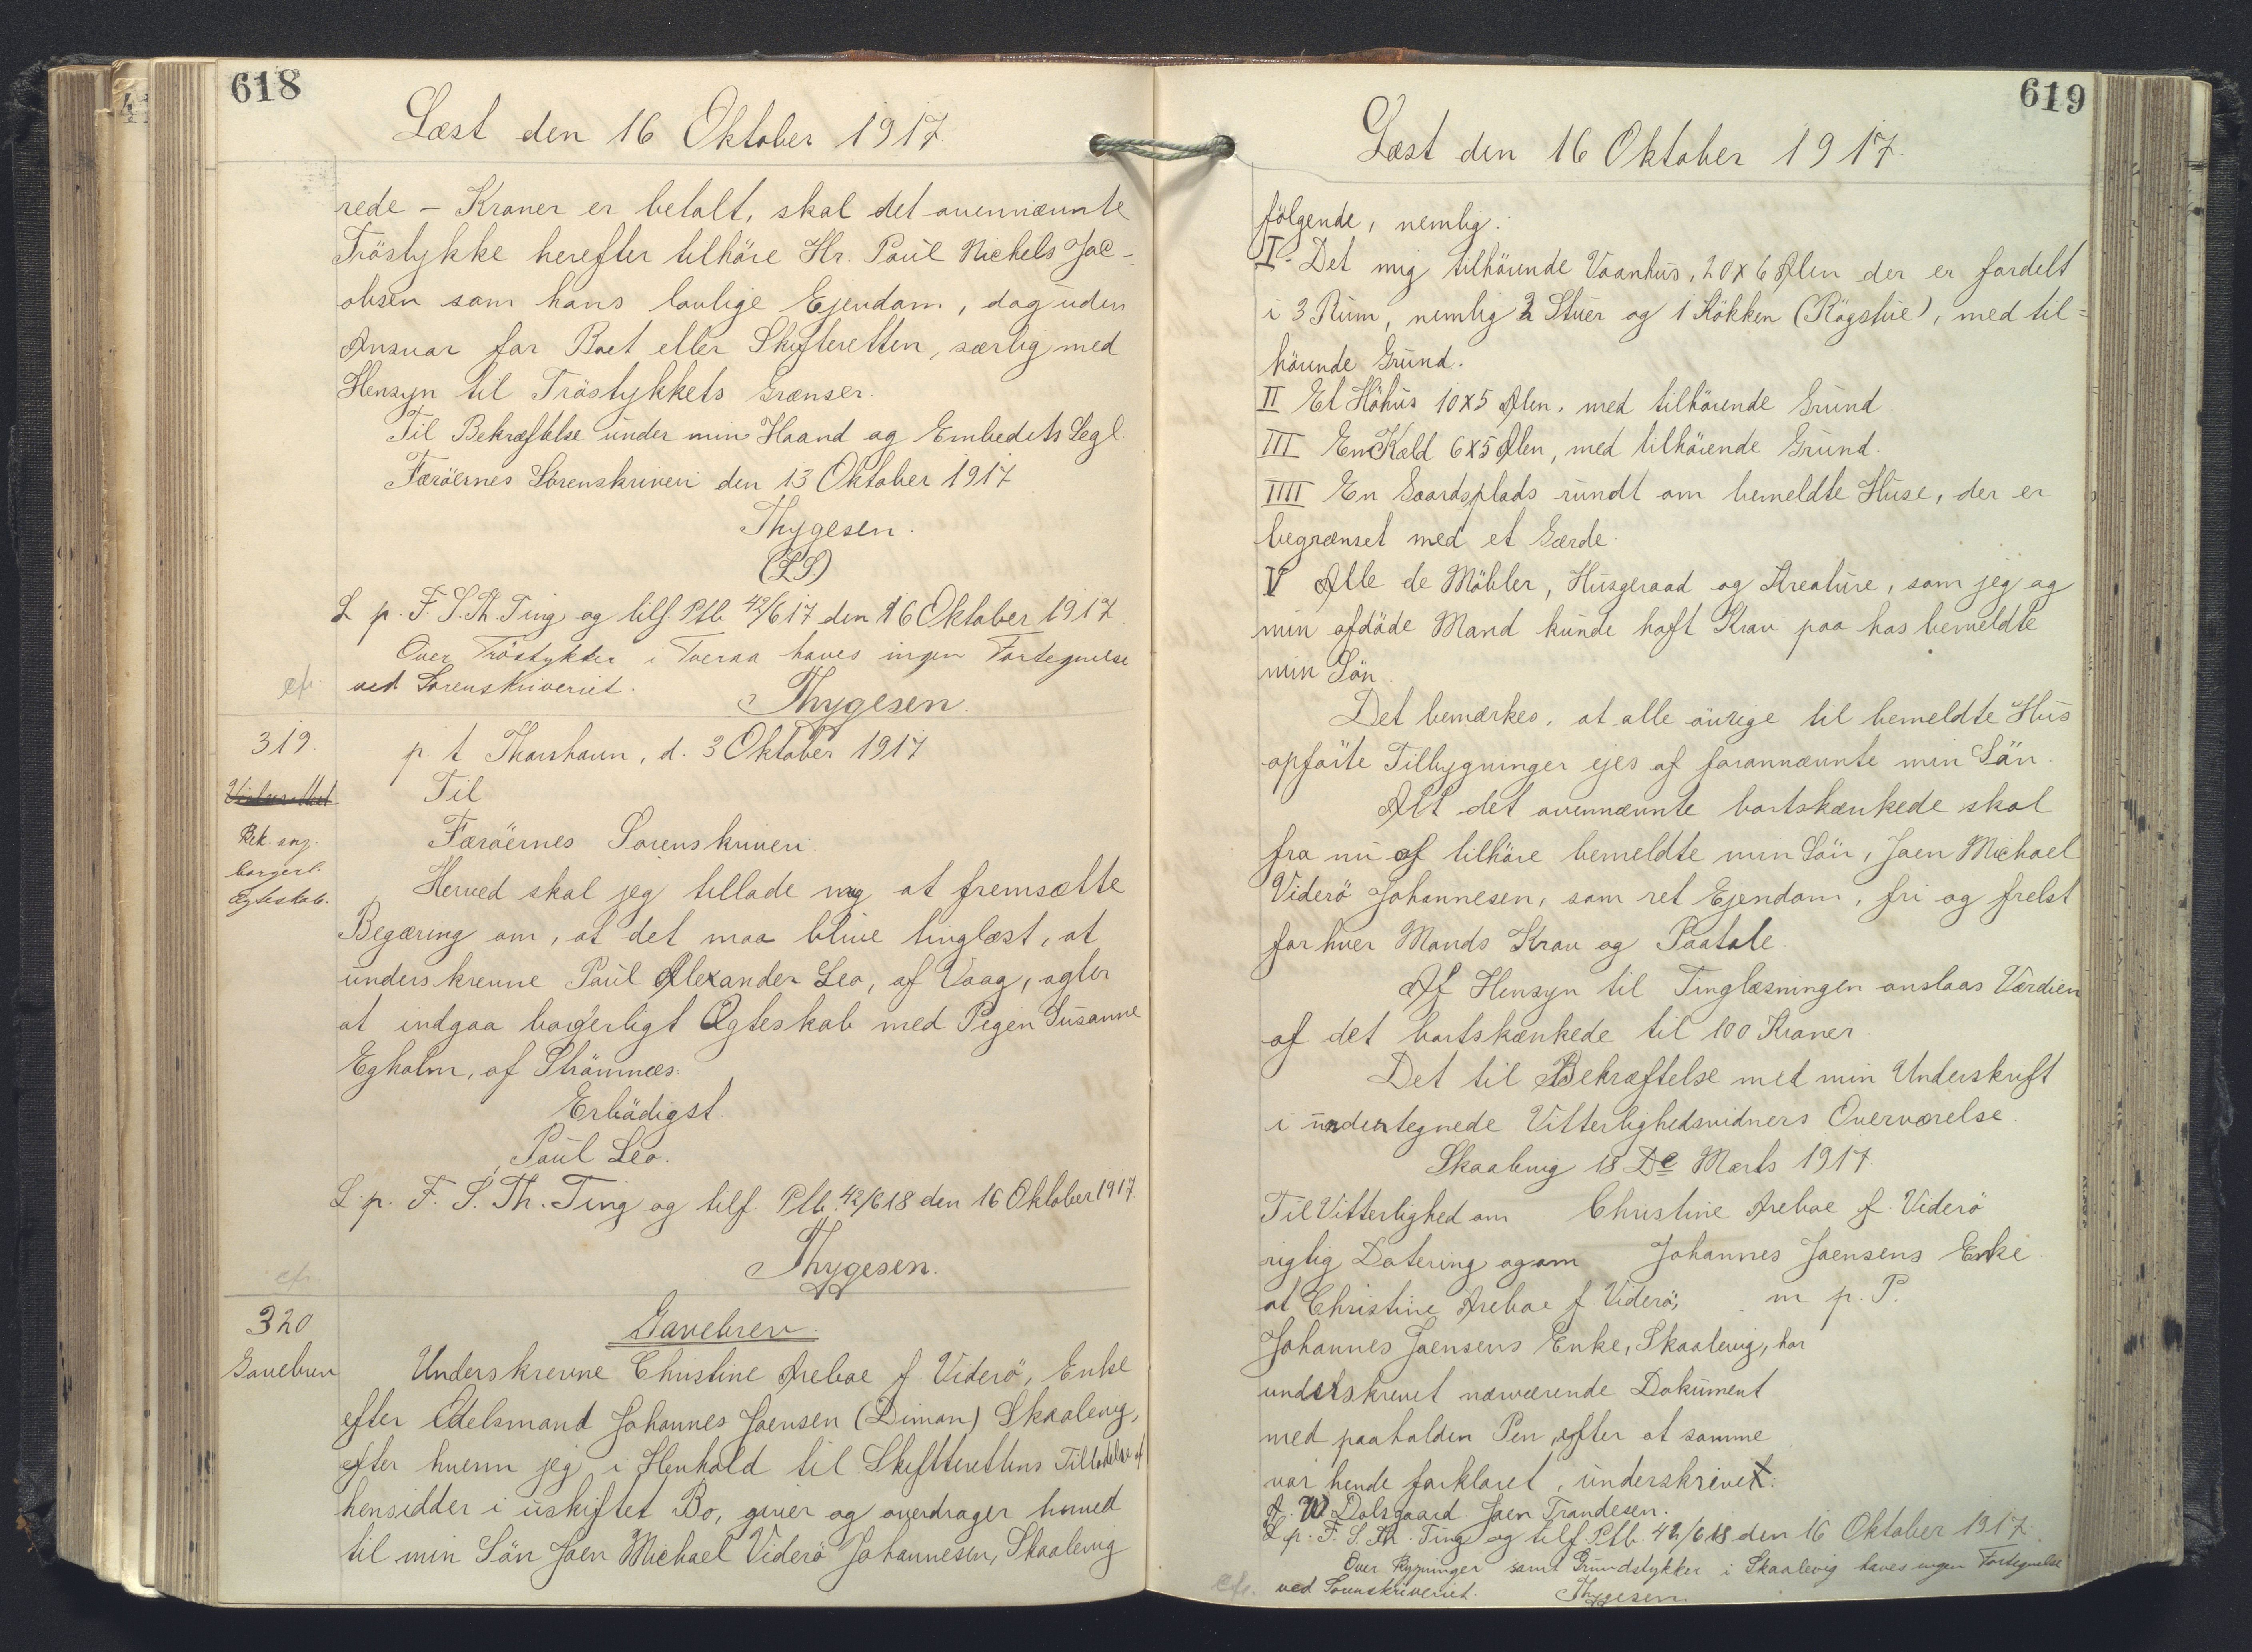 618
Læst den 16 Oktober 1917
rede – Kroner er betalt, skal det ovennævnte
Tröstykke herefter tilhöre Hr. Paul Nichels Jac-
obsen som hans lovlige Ejendom, dog uden
Ansvar for Boet eller Skifteretten, særlig med
Hensyn til Tröstykkets Grænser.
Til Bekræftelse under min Haand og Embedets Segl.
Færöernes Sorenskriveri den 13 Oktober 1917
Thygesen.
(LS)
L p. F. S. Th. Ting og tilf. Ptb 42/617 den 16 Oktober 1917.
Over Tröstykker i Tveraa haves ingen Fortegnelse
cfr. ved Sorenskriveriet.
Thygesen.
319.
p. t Thorshavn, d. 3 Oktober 1917
Til
Bek. ang.
borgerl.
Ægteskab.
Færöernes Sorenskriveri.
Herved skal jeg tillade mig at fremsætte
Begæring om, at det maa blive tinglæst, at
underskrevne Paul Alexander Leo, af Vaag, agter
at indgaa borgerligt Ægteskab med Pigen Susanne
Egholm, af Strömnæs.
Erbödigst.
Paul Leo.
L. p. F. S. Th. Ting og tilf. Ptb. 42/618 den 16 Oktober 1917.
Thygesen.
cfr.
320
Gavebrev
Gavebrev.
Underskrevne Christine Areboe f.Viderö, Enke
efter Odelsmand Johannes Joensen (Dimon) Skaalevig,
efter hvem jeg i Henhold til Skifterettens Tilladelse af
hensidder i uskiftet Bo, giver og overdrager herved
til min Sön Joen Michael Viderö Johannesen, Skaalevig
619
Læst den 16 Oktober 1917.
fölgende, nemlig:
I – Det mig tilhörende Vaanhus, 20 x 6 Alen der er fordelt
i 3 Rum, nemlig 2 Stuer og 1 Kökken (Rögstue), med til=
hörende Grund.
II Et Höhus 10x5 Alen, med tilhörende Grund.
III En Kæld 6x5 Alen, med tilhörende Grund.
IIII En Gaardsplads rundt om bemeldte Huse, der er
begrænset med et Gærde.
V Alle de Möbler, Husgeraad og Kreature, som jeg og
min afdöde Mand kunde haft Krav paa hos bemeldte
min Sön.
Det bemærkes, at alle övrige til bemeldte Hus
opförte Tilbygninger ejes af forannævnte min Sön.
Alt det ovennævnte bortskænkede skal
fra nu af tilhöre bemeldte min Sön, Joen Michael
Viderö Johannesen, som ret Ejendom, fri og frelst
for hver Mands Krav og Paatale.
Af Hensyn til Tinglæsningen anslaas Værdien
af det bortskænkede til 100 Kroner.
Det til Bekræftelse med min Underskrift
i undertegnede Vitterlighedsvidners Overværelse.
Skaalevig 18 De Marts 1917.
Til Vitterlighed om
rigtig Datering og om
at Christine Areboe f. Viderö,
Christine Areboe f. Viderö
Johannes Joensens Enke
m p. P.
Johannes Joensens Enke, Skaalevig, har
underskrevet nærværende Dokument
med paaholden Pen, efter at samme
var hende forklaret, underskrivet.
A. W Dalsgaard. Joen Trondesen.
L p. F. S. Th. Ting og tilf. Ptb. 42/618 den 16 Oktober 1917.
Over Bygninger samt Grundstykker i Skaalevig haves ingen Fortegnelse
cfr. ved Sorenskriveriet.
Thygesen